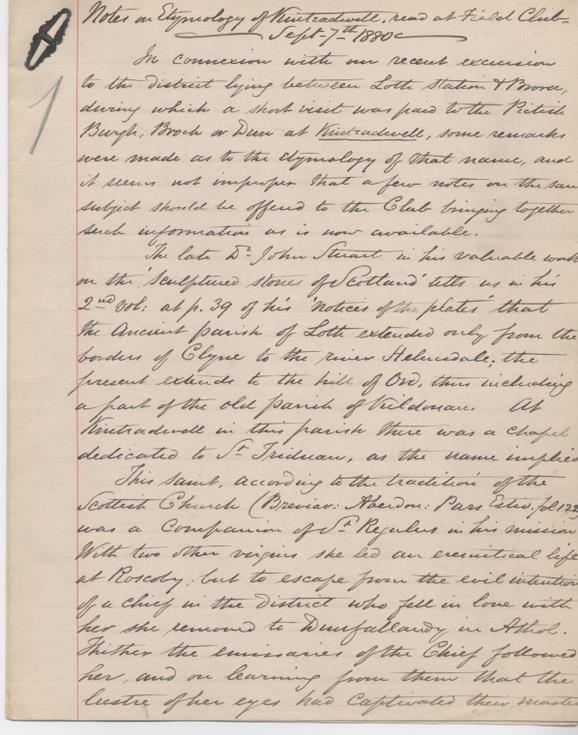 Notes on Etymology of Kintradwell, read at Field Club
Sept. 7th 1880
In connexion with our recent excursion
to the district lying between Loth Station & Brora,
during which a short visit was paid to the Pictish
Burgh, Broch or Dun at Kintradwell, some remarks
were made as to the etymology of that name, and
it seems not improper that a few notes on the same
subject should be offered to the Club bringing together
such information as is now available.
The late Dr. John Stuart in his valuable work
on the 'sculptured stones of Scotland' tells us in his
2nd vol: at p. 39 of his 'notices of the plates' that
the ancient parish of Loth extended only from the
borders of Clyne to the river Helmsdale; the
present extends to the hill of Ord, thus including
a part of the old parish of Kildonan. At
Kintradwell in this parish there was a chapel
dedicated to St Triduan, as the name implies
This Saint, according to the tradition of the
Scottish Church (Breviar: Aberdon: Pars Estiv, fol 122
was a companion of St Regulus in his mission
With two other virgins she led an eremitical life
at Roscoby; but to escape from the evil intention
of a chief in the district who fell in love with
her she removed to Dunfallandy in Athol.
Thither the emissaries of the Chief followed
her, and on learning from them that the
lustre of her eyes had captivated their master